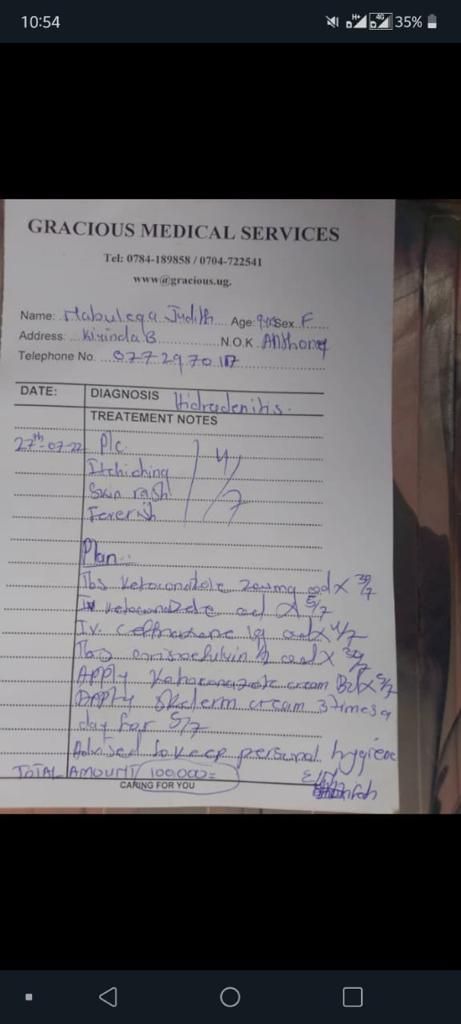 10:54
H+ 4G 35%
GRACIOUS MEDICAL SERVICES
Tel: 0784-189858 / 0704-722541
www@gracious.ug.
Name: Judith Age: 9 Sex F
Address: Kirinda B N.O.K Anthony
Telephone No.
DATE: DIAGNOSIS Hidradenitis.
TREATEMENT NOTES
27th-07-22 P/c
Itchiching 4/7
Skin rash
Feverish
Plan:
Tbs Ketoconazole 200mg od x 30/7
ketoconazole od x 5/7
I.v. 1g od x 4/7
Tbs od x 30/7
Apply Ketoconazole cream x 5/7
Apply Skderm cream 3 times a
day for 5/7
Advised to keep personal hygiene
TOTAL AMOUNT 100,000=
CARING FOR YOU